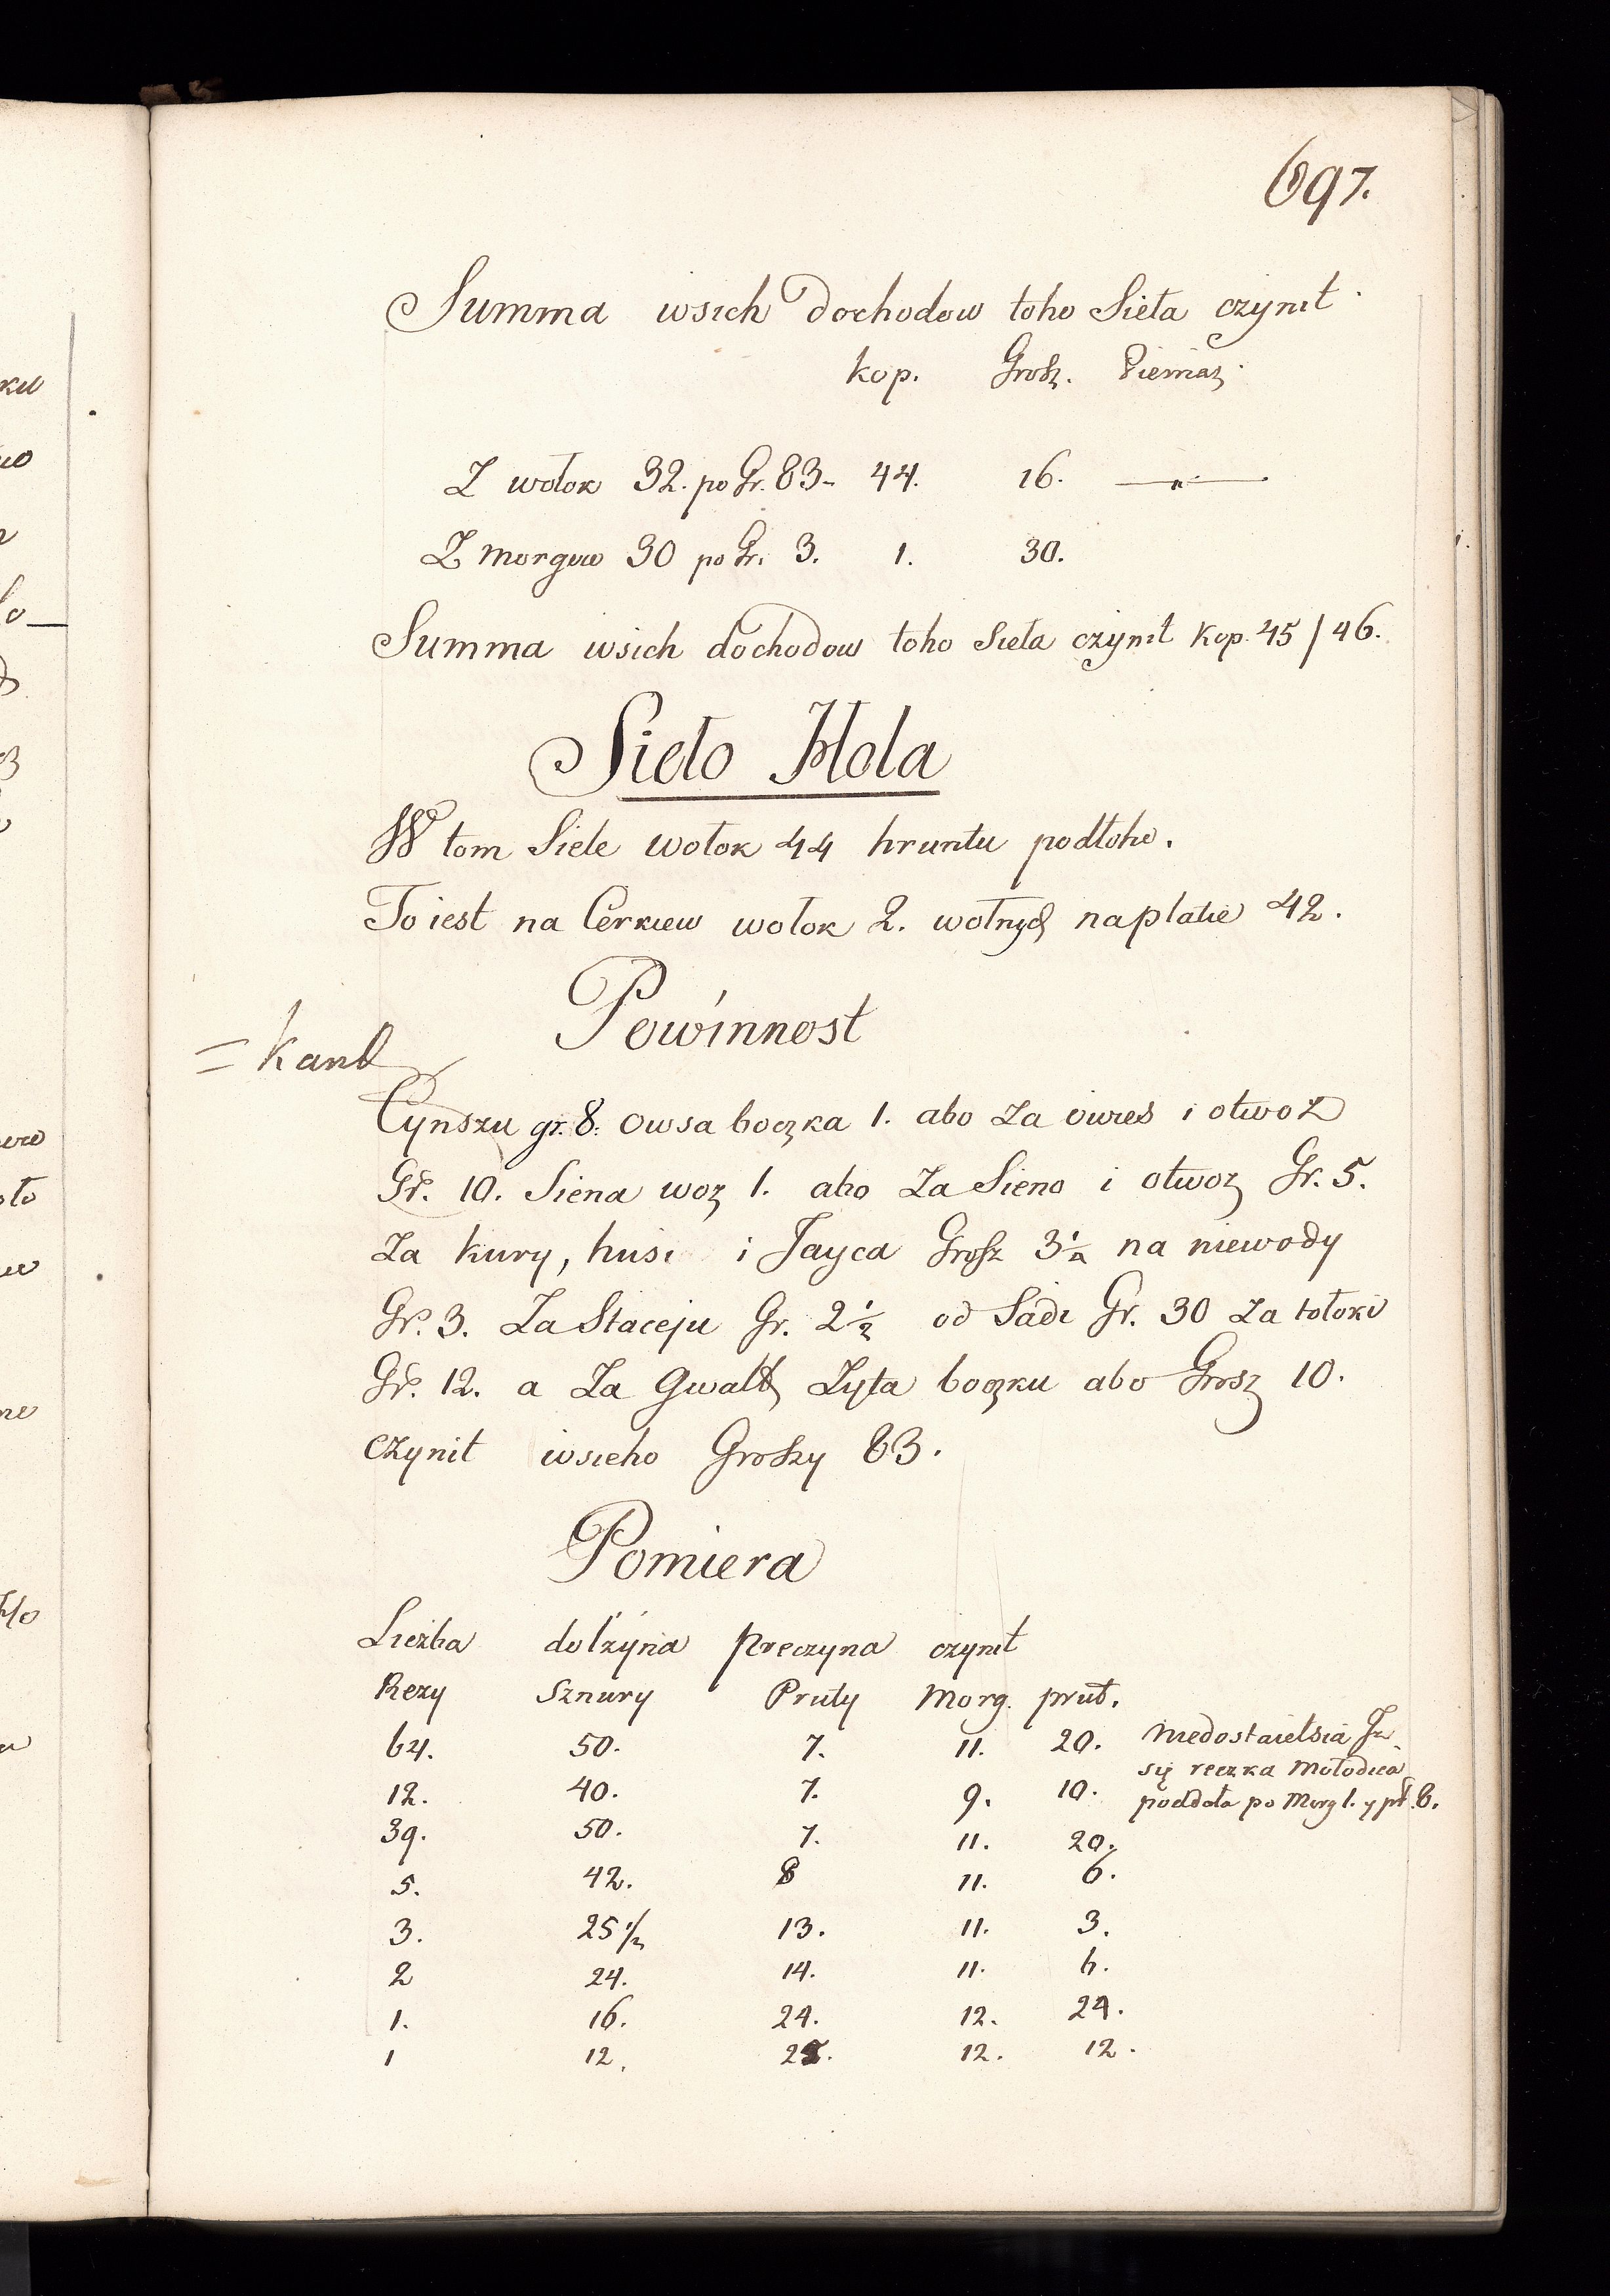 697.
Summa wsich dochodow toho Sieła czynit
kop. Grosz. Pieniaz
Z wołok 32. po Gr. 83- 44. 16. —"—
Z Morgow 30 po Gr. 3. 1. 30.
Summa wsich dochodow toho Sieła czynit kop. 45/46.
Sieło Hola
W tom Siele wołok 44 hruntu podłoho.
To iest na Cerkiew wołok 2. wolnych na platie 42.
Powinnost
Cynszu gr. 8. Owsa boczka 1. abo Za owies i otwoz
Gr. 10. Siena woz 1. abo Za Sieno i otwoz Gr. 5.
Za kury, husi i Jayca Grosz 3½ na niewody
Gr. 3. Za Staceju Gr. 2½ od Sadi Gr. 30 Za tołoki
Gr. 12. a Za Gwałt Zyta boczku abo Grosz 10.
czynit wsieho Groszy 83.
Pomiera
Liczba dołżyna preczyna czynit
Rezy Sznury Pruty Morg. prut.
64. 50. 7. 11. 20. Niedostaietsia
się reczka Mołodica
12. 40. 7. 9. 10. po Morg 1. y pr. 6.
39. 50. 7. 11. 20.
5. 42. 8 11. 6.
3. 25½ 13. 11. 3.
2 24. 14. 11. 6.
1. 16. 24. 12. 24.
1 12. 12. 12.